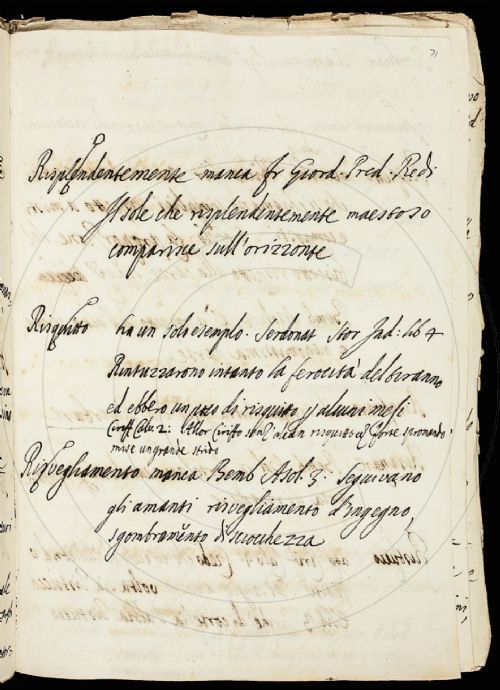 71
Risplendentemente manca fr Giord. Pred. Redi
Il sole che risplendentemente maestoso
comparisce sull'orizonte
Risquitto ha un solo esemplo. Serdonat Stor Ind: lib 4
Rintuzzarono intanto la ferocità del tiranno
ed ebbero un poco di risquito p alcuni mesi
Ciriff Calv 2: Allor Ciriffo risquitto e forte spronando
mise un grande strido
Risvegliamento manca Bemb Asol. 3. Seguivano
gli amanti risvegliamento d'ingegno,
sgombramento di sciocchezza